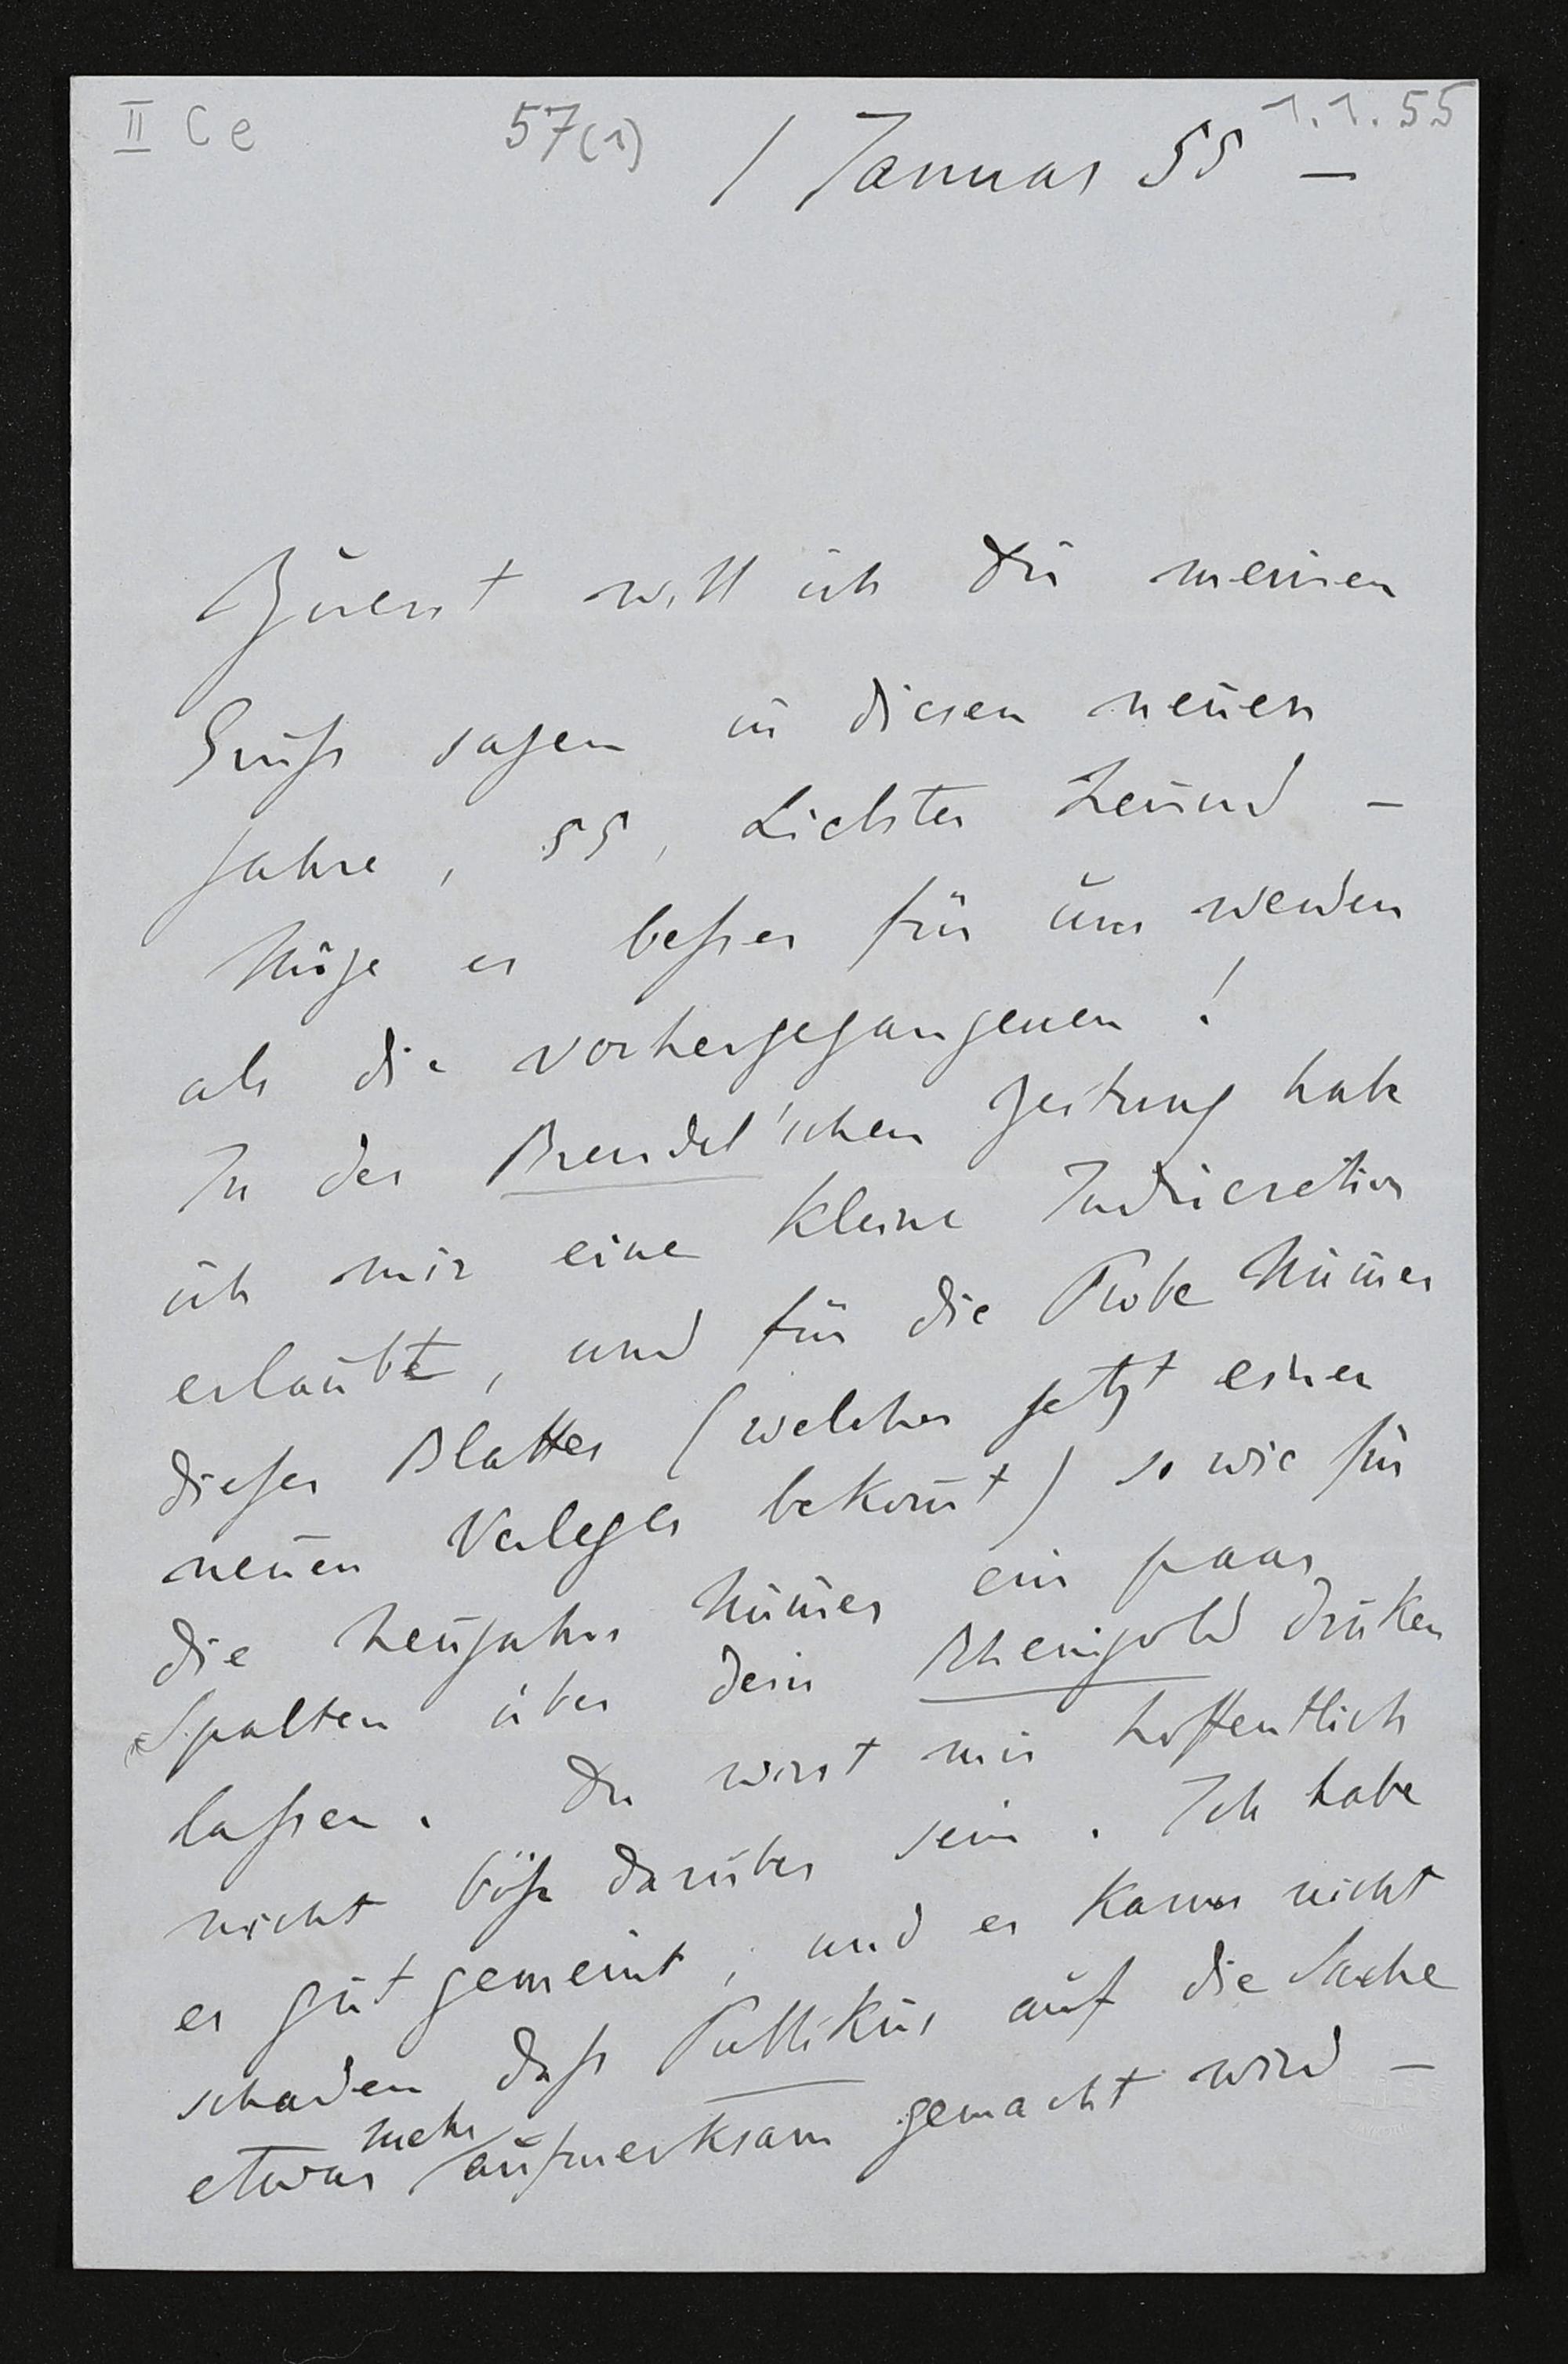 II Ce 57(1) 1.1.55
1 Januar 55 —
Zuerst will ich Dir meinen
Gruß sagen in diesen neuen
Jahre, 55, Liebster Freund –
Möge es beßer für uns werden
als die vorhergegangenen!
In der Brendel'schen Zeitung habe
ich mir eine kleine Indiscretion
erlaubt, und für die Probe Num̄er
dieses Blattes (welches jetzt einen
neuen Verleger bekom̄t) so wie für
die Neujahrs Num̄er ein paar
Spalten über dein Rheingold druken
laßen. Du wirst mir hoffentlich
nicht böse darüber sein. Ich habe
es gut gemeint, und es kann nicht
schaden daß Publikus auf die Sache
etwas mehr aufmerksam gemacht wird –